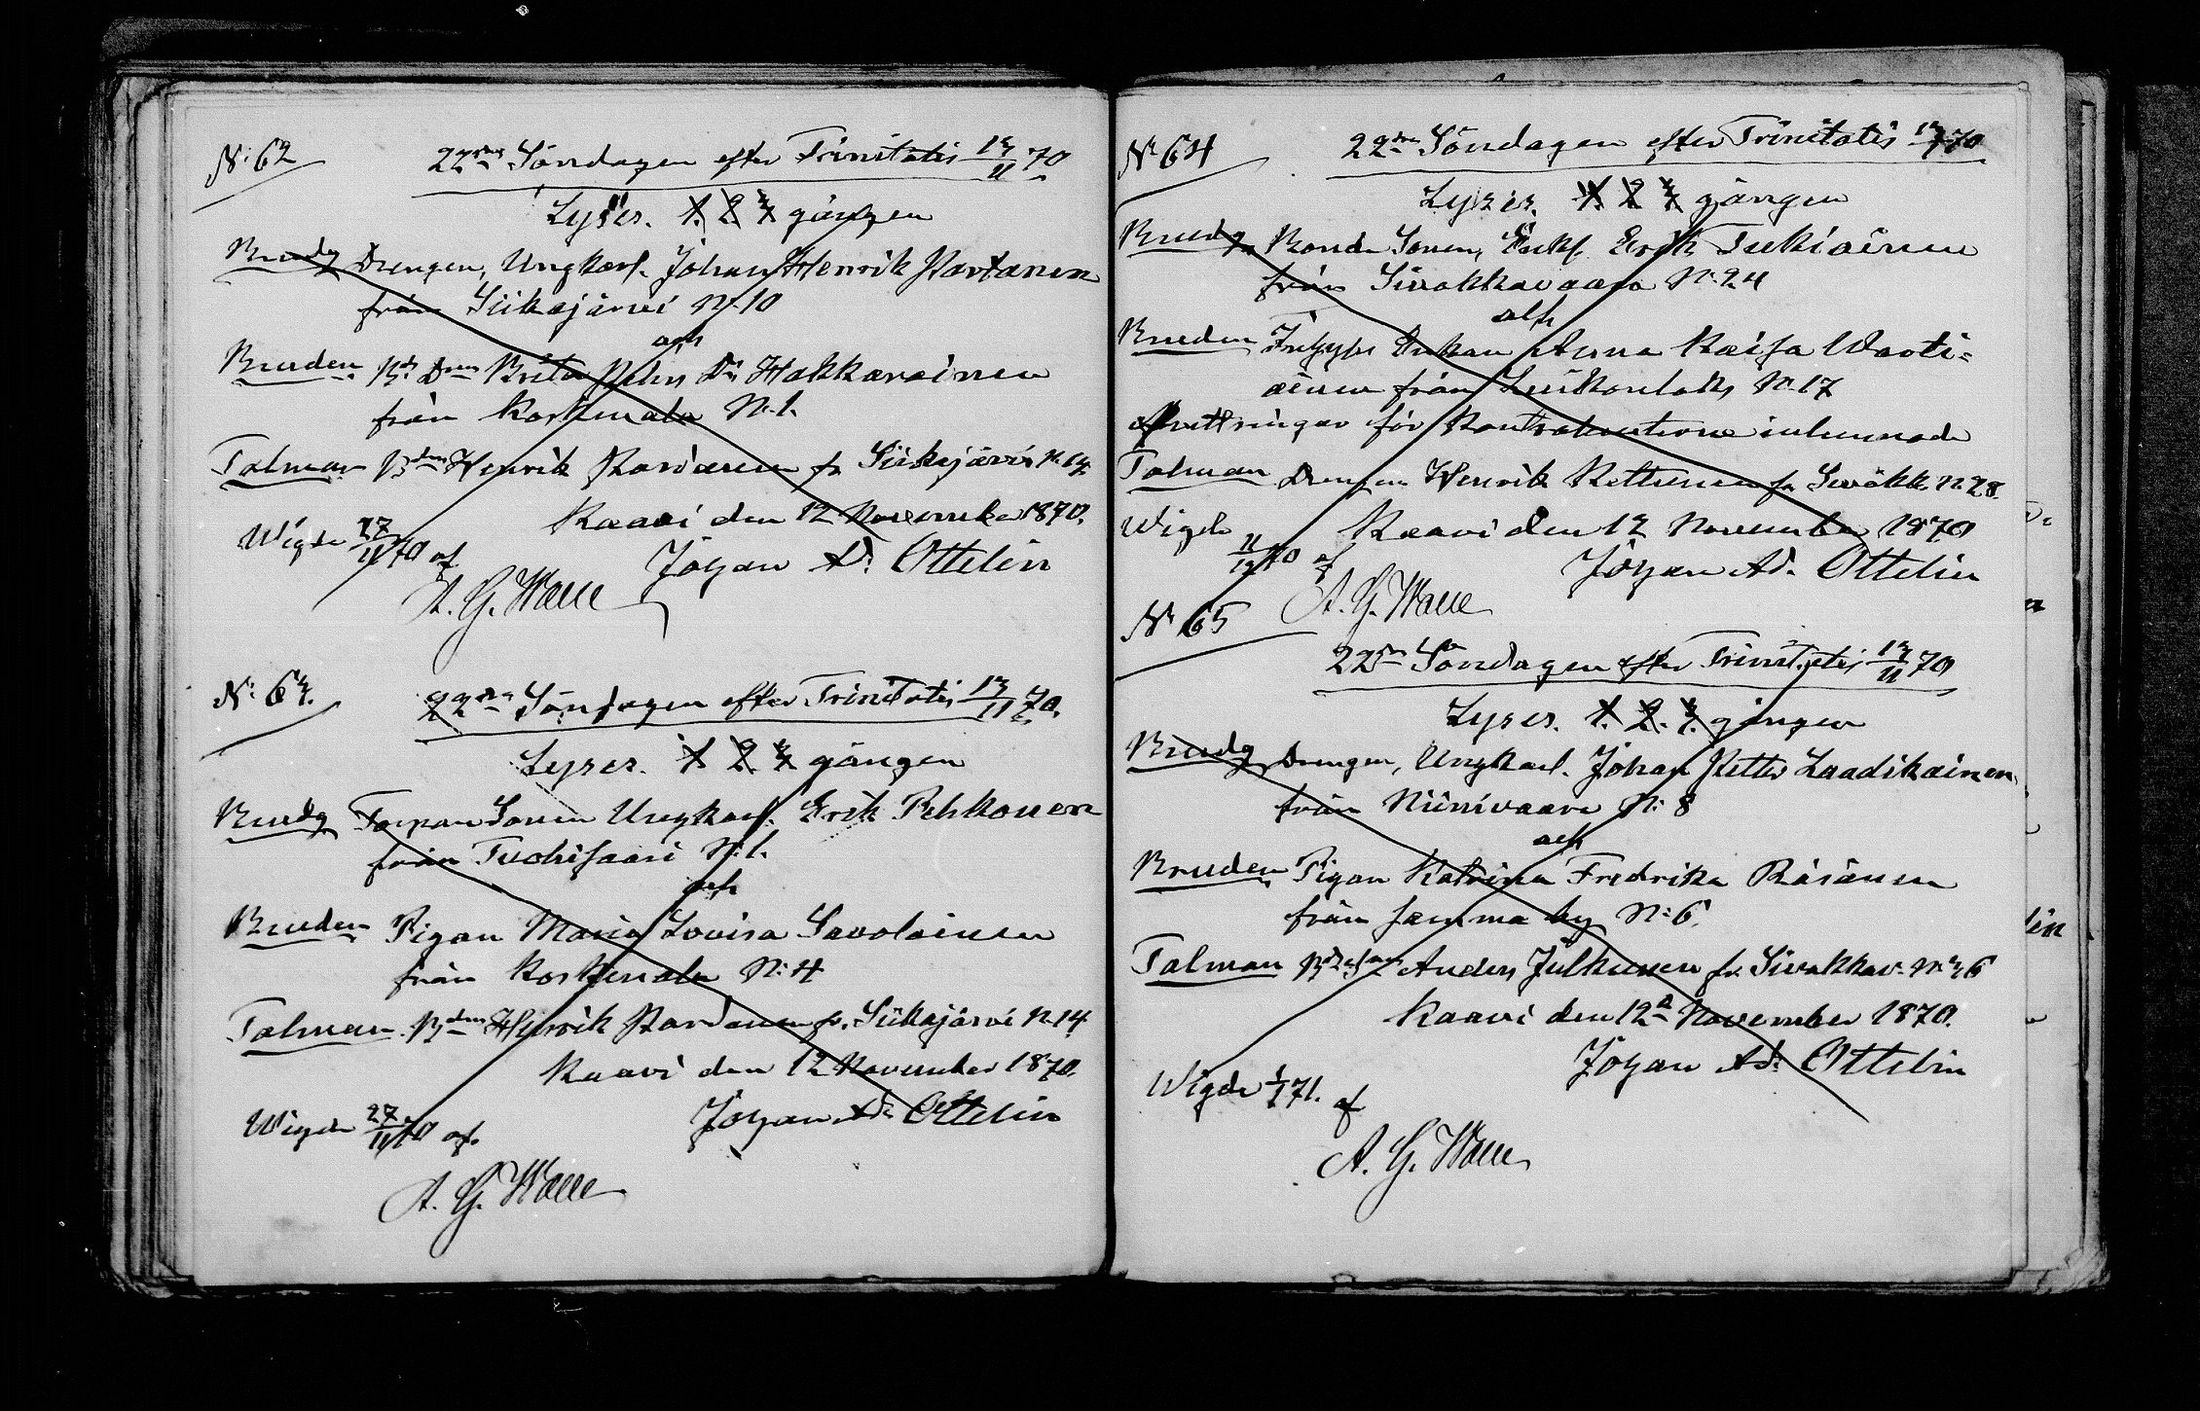 N:o 62
22dra Söndagen efter Trinitatis 13/11 70
Lyses. 1. 2 3 gången
Brudg Drengen, Ungkarl. Johan Henrik Partanen
från Siikajärvi N:10
och
Bruden Bd: Drn Brita Pehrs Dr Hakkarainen
från Koskenala N:1.
Talman Bden Henrik Partanen fr Siikajärvi N:14
Kaavi den 12 November 1870.
Wigde 27/11 70 af
Johan Ad. Ottelin
A. G. Walle
N:o 63.
22dra Söndagen efter Trinitatis 13/11 70.
Lyses. 1 2. 3 gången
Brudg Torpare Sonen Ungkarl. Erik Pehkonen
från Tuohisaari N:1.
och
Bruden Pigan Maria Lovisa Savolainen
från Koskenala N:4
Talman Bden Henrik Partanen fr. Siikajärvi N:14
Kaavi den 12 November 1870.
Wigde 27/11 70 af.
Johan Ad: Ottelin
A. G. Walle
No 64
22dra Söndagen efter Trinitatis 13/11 70
Lyses. 1. 2 3 gången
Brudg Bonde Sonen, Enkl. Erik Tukiainen
från Sivakkavaara N:24
och
Bruden Enkan Anna Kaisa Wasti=
ainen från Luikonlaks N:17
afvittringar för inlemnade
Talman Drengen Henrik Kettunen fr Sivakk. N:28
Kaavi den 12 November 1870
Wigde 11/12 70 af
Johan Ad. Ottelin
A. G. Walle
No 65
22dra Söndagen efter Trinitatis 13/11 70
Lyses. 1. 2. 3. gången
Brudg Drengen, Ungkarl. Johan Petter Laadikainen
från Niinivaara N:8
och
Bruden Pigan Katrina Fredrika Räsänen
från samma by N:6.
Talman Anders Julkunen fr Sivakkav. N:36
Kaavi den 12 November 1870.
Johan Ad: Ottelin
Wigde 1/1 71. af
A. G. Walle